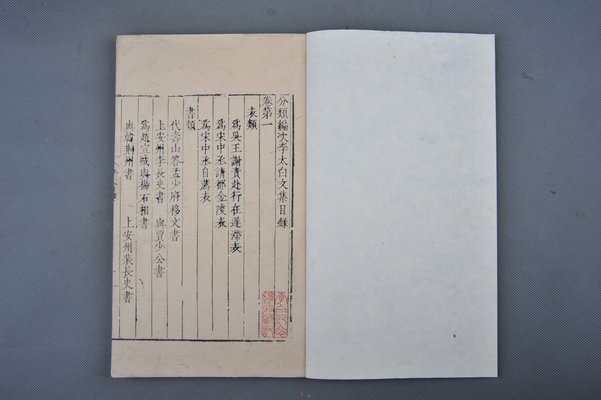 分類編次李太白文集目錄
卷第一
表類
為吳王謝責赴行在遲滯表
為宋中丞請都金陵表
為宋中丞自薦表
書類
代壽山答孟少府移文書
上安州李長史書 與賈少公書
為趙宣城與楊右相書
與韓荊州書 上安州裴長史書